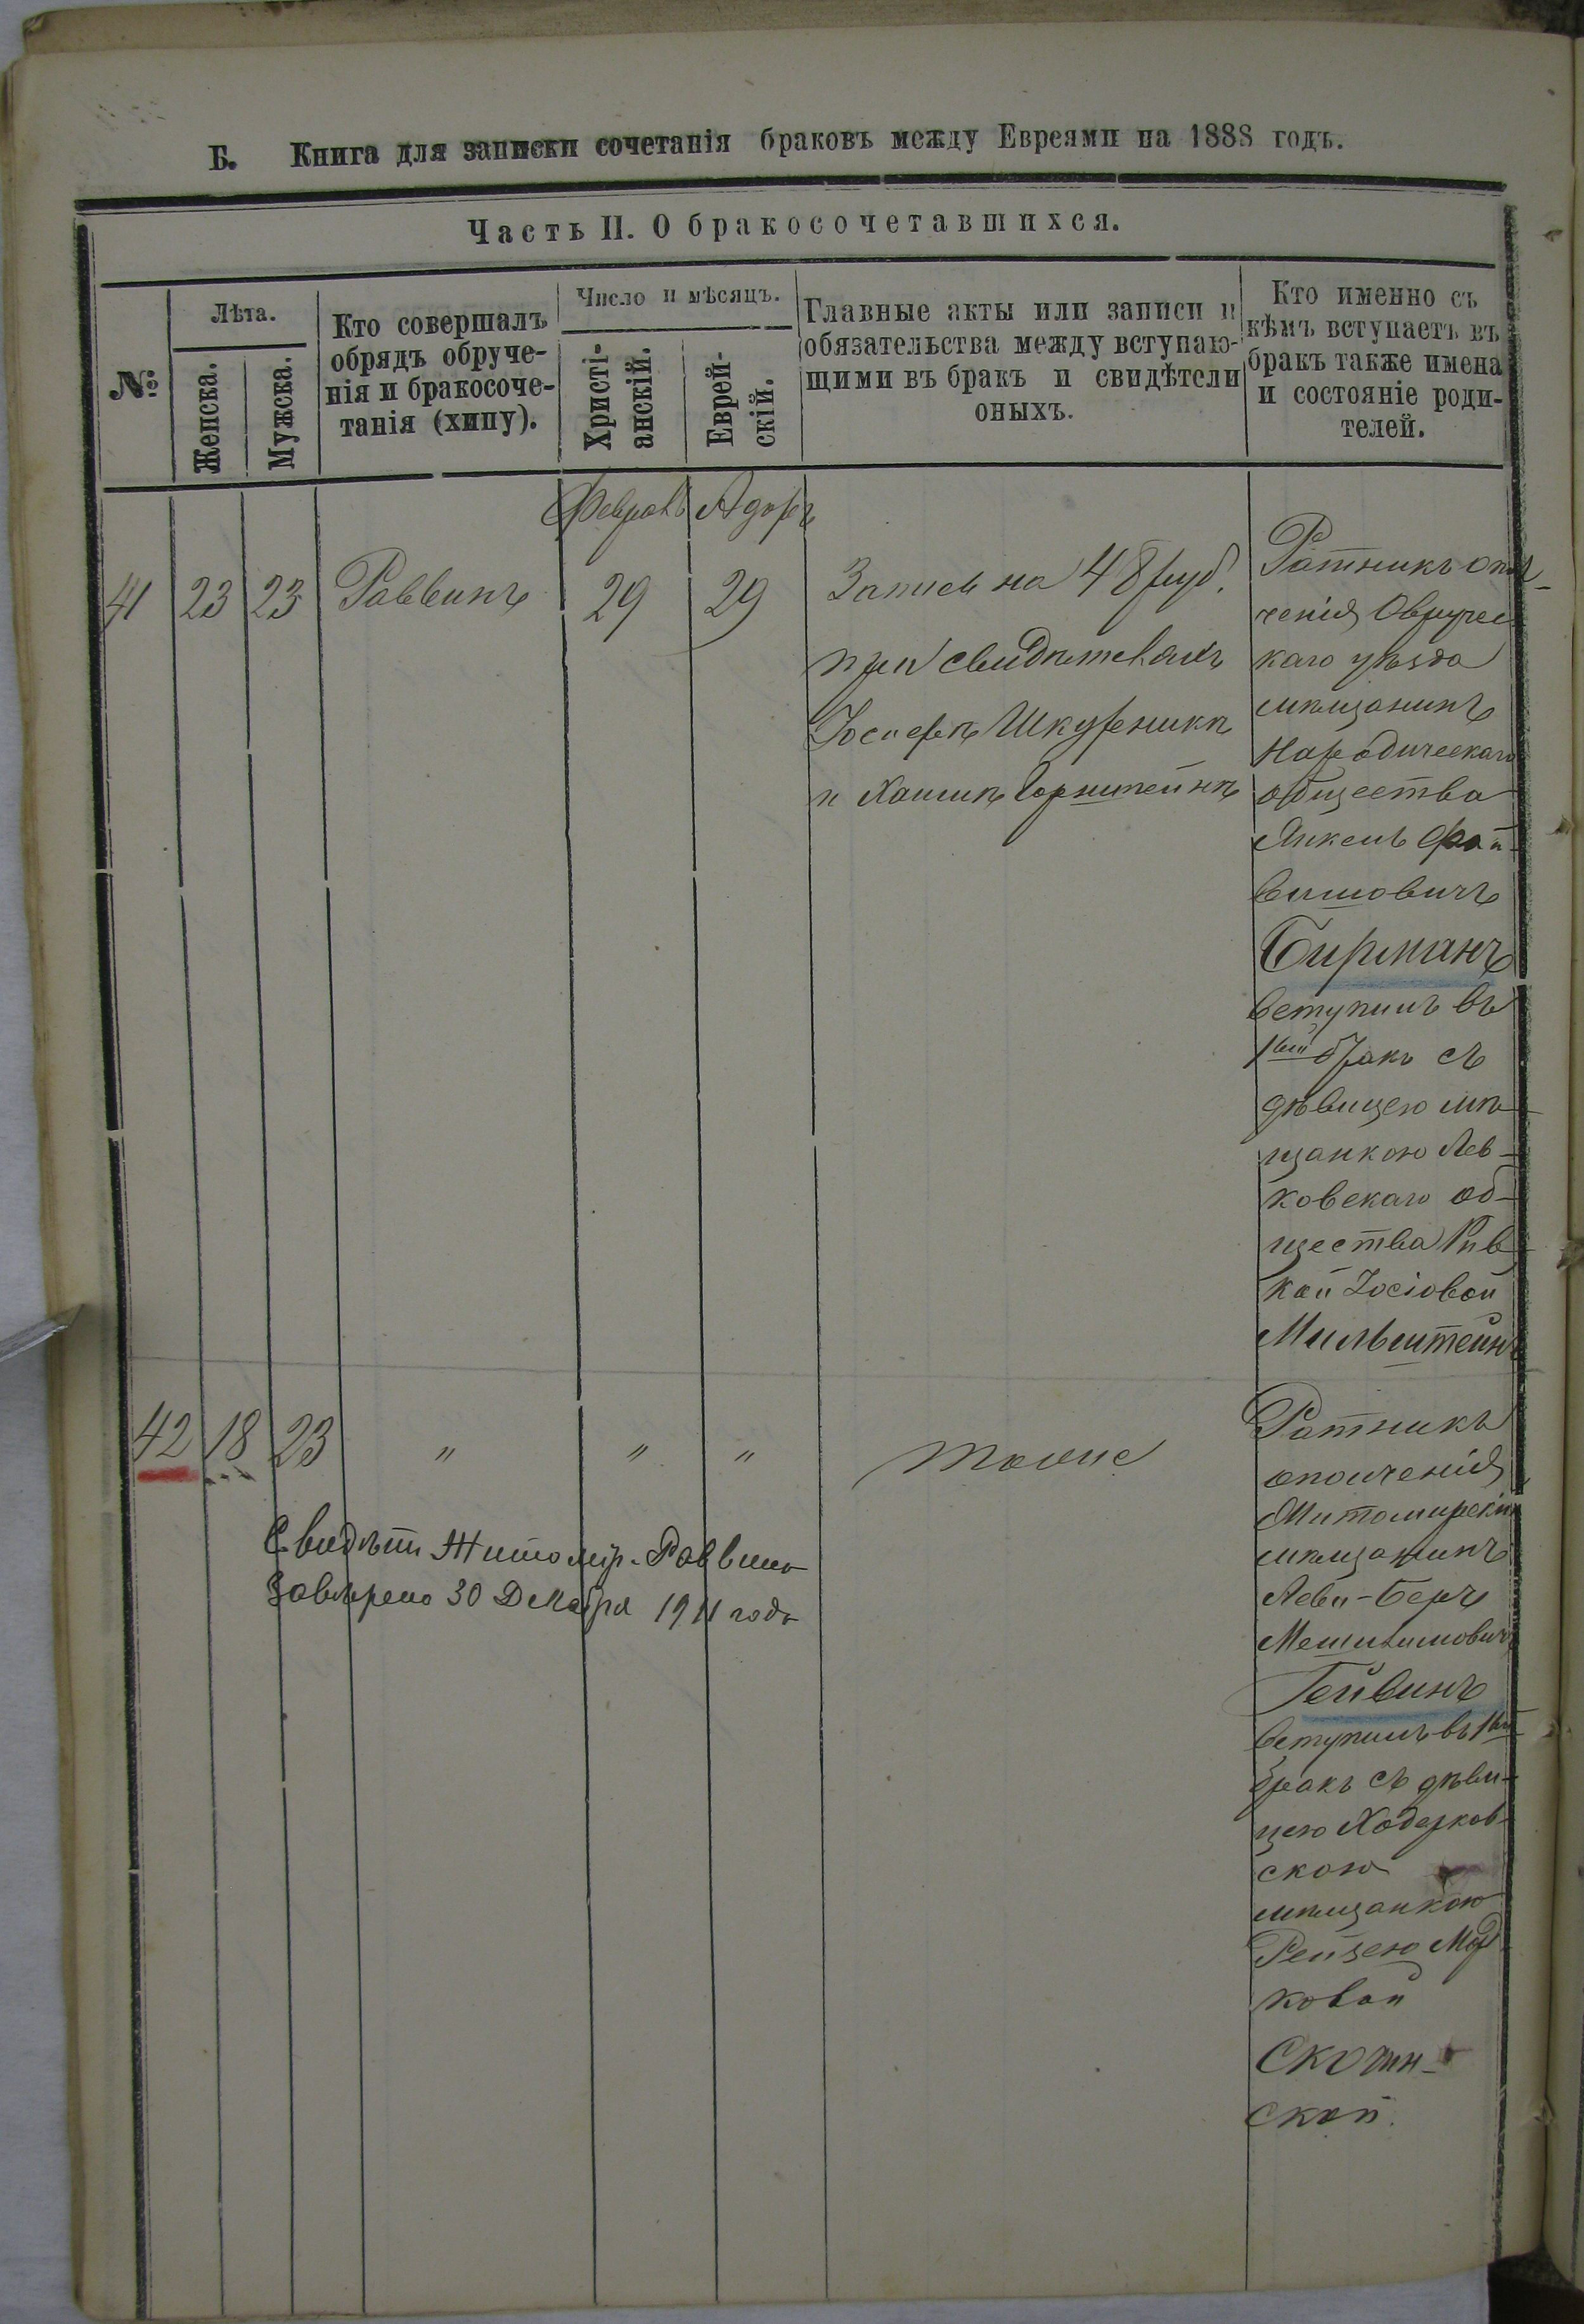 Б. Книга для записки сочетанія браковъ между Евреями на 1888 годъ.
Часть II. О бракосочетавшихся.
№
Лѣта.
Женска.
Мужска.
Кто совершалъ
обрядъ обруче-
нія и бракосоче-
танія (хипу).
Число и мѣсяцъ.
Христі-
анскій.
Еврей-
скій.
Главные акты или записи и
обязательства между вступаю-
щими въ бракъ и свидѣтели
оныхъ.
Кто именно съ
кѣмъ вступаетъ въ
бракъ также имена
и состояніе роди-
телей.
Февраль Адоръ
41 23 23 Раввинъ 29 29
Запись на 48 руб.
при свидѣтеляхъ
Іосифѣ Шкурникѣ
и Хаимѣ Горнштейнѣ
Ратникъ опол-
ченія Овручс
каго уѣзда
мѣщанинъ
Народическаго
общества
Янкель Фай-
вишовичъ
Бирманъ
вступилъ въ
1вый бракъ съ
дѣвицею мѣ-
щанкою Лев-
ковскаго об-
щества Рив-
кой Іосіовой
Мильштейнъ
42 18 23 " " " тоже
Свидѣт. Житомір. Раввина
Завѣрено 30 Декабря 1911 года
Ратникъ
ополченія
Житомирскій
мѣщанинъ
Леви-Беръ
Мешилимовичъ
Гейвинъ
вступилъ въ 1вый
бракъ съ дѣви-
цею Ходорков-
скою
мѣщанкою
Рейзею Мор
ковой
Скотин-
ской.